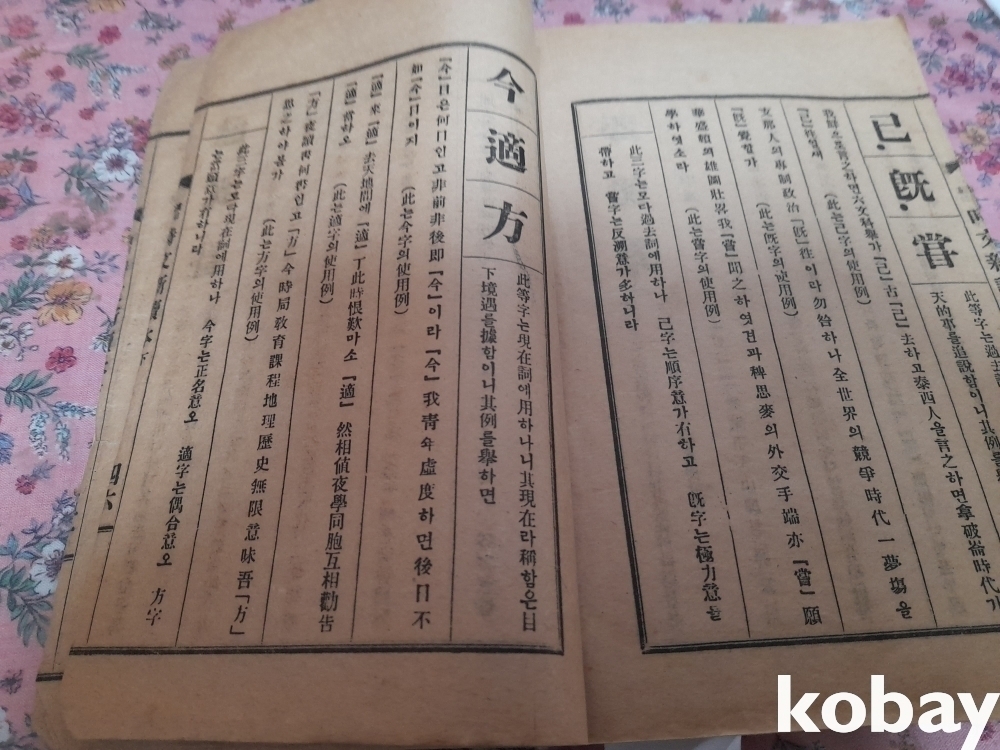 已.
旣.
嘗
此等字는過去
天的事를追說함이니其例를
言之하면六文만擧가『已』古『已』去하고泰西人을言之하면拿破崙時代가
『已』往일새
(此는已字의使用例)
文那人의專制政治『旣』性이라勿咎하나全世界의競爭時代一夢場을
『旣』覺힐가
(此는旣字의使用例)
華盛頓의雄圖壯畧我『嘗』聞之하엿건과稗思麥의外交手端亦『嘗』願
學하엿소라
(此는嘗字의使用例)
此三字는모다過去詞에用하나 已字는順序意가有하고 旣字는極力意을
帶하고 嘗字는反溯意가순하니라
今
適
方
此等字는現在詞에用하나니其現在라稱함은目
下境遇를據함이니其例를擧하면
『今』日은何日인고非前非後即『今』이라『今』我靑年虛度하면後日不
如『今』日이지
(此는今字의使用例)
『適』來『適』去天地間에『適』丁此時恨歎마소『適』然相値夜學同胞互相勸告
『適』當하오
(此는適字의使用例)
『方』夜讀書何得인고『方』今時局敎育課程地理歷史無限意味吾『方』
思之하야볼가
(此는方字의使用例)
此三字는모다現在詞에用하나 今字는正名意오 適字는偶合意오 方字
는當頭意가有하니라
四六
kobay